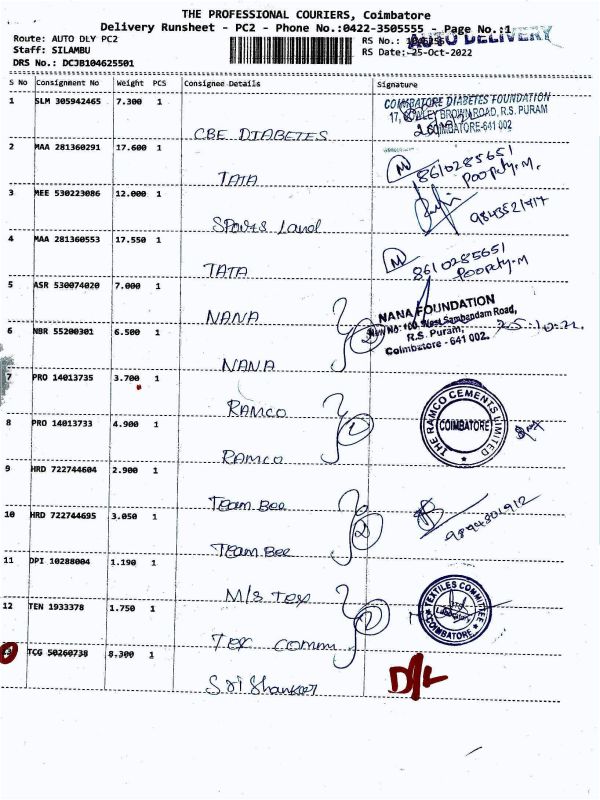 THE PROFESSIONAL COURIERS, Coimbatore
Delivery Runsheet - PC2 - Phone No.:0422-3505555 - Page No.:1
Route: AUTO DLY PC2
RS No.:
AUTO DELIVERY
Staff: SILAMBU
RS Date: 25-Oct-2022
DRS No.: DCJB104625501
S No Consignment No Weight PCS Consignee Details Signature
1 SLM 305942465 7.300 1
CBE DIABETES
COIMBATORE DIABETES FOUNDATION
17, ROAD, R.S. PURAM
COIMBATORE-641 002
2 MAA 281360291 17.600 1
TATA
M 8610285651
3 MEE 530223086 12.000 1
Sports Land
4 MAA 281360553 17.550 1
TATA
M 8610285651
5 ASR 530074020 7.000 1
NANA
NANA FOUNDATION
New No: 100, West Sambandam Road,
R.S. Puram,
Coimbatore - 641 002.
25.10.22.
6 NBR 55200301 6.500 1
NANA
2
7 PRO 14013735 3.700 1
RAMCO
8 PRO 14013733 4.900 1
RAMCO
THE RAMCO CEMENTS LIMITED
COIMBATORE
9 HRD 722744604 2.900 1
Team Bee
10 HRD 722744695 3.050 1
Team Bee
2
9894801912
11 DPI 10288004 1.190 1
M/s Tex
12 TEN 1933378 1.750 1
Tex Comm
TEXTILES COMMITTEE
Laboratory
COIMBATORE
13 TCG 50260738 8.300 1
Sri Shankar
D/L